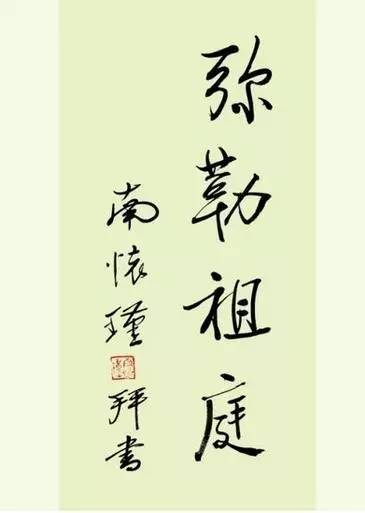 弥勒祖庭
南怀瑾
拜書